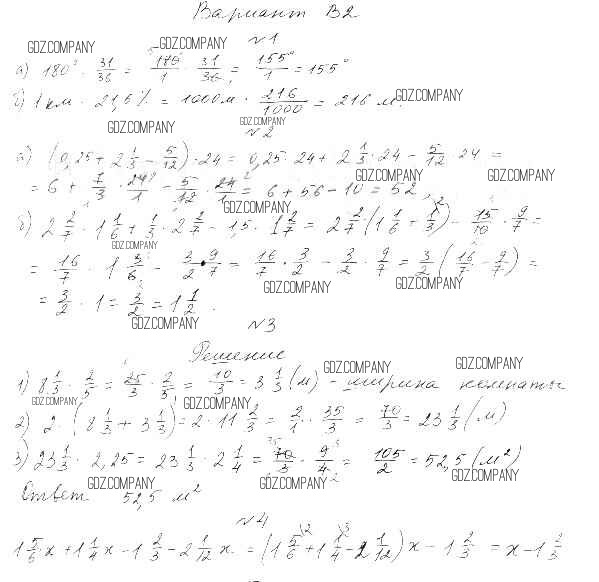 Вариант В2
№1
GDZ.COMPANY GDZ.COMPANY
а) 180° · 31/36 = 180/1 · 31/36 = 155°/1 = 155°
б) 1 км · 21,6% = 1000 м · 216/1000 = 216 м. GDZ.COMPANY
GDZ.COMPANY GDZ.COMPANY
№2
а) (0,25 + 2 1/3 - 5/12) · 24 = 0,25 · 24 + 2 1/3 · 24 - 5/12 · 24 =
GDZ.COMPANY GDZ.COMPANY
= 6 + 7/3 · 24/1 - 5/12 · 24/1 = 6 + 56 - 10 = 52
GDZ.COMPANY
б) 2 2/7 · 1 1/6 + 1/3 · 2 2/7 - 1,5 · 1 2/7 = 2 2/7 (1 1/6 + 1/3) - 15/10 · 9/7 =
GDZ.COMPANY
= 16/7 · 1 3/6 - 3/2 · 9/7 = 16/7 · 3/2 - 3/2 · 9/7 = 3/2 (16/7 - 9/7) =
GDZ.COMPANY GDZ.COMPANY
= 3/2 · 1 = 3/2 = 1 1/2.
GDZ.COMPANY
№3
Решение
GDZ.COMPANY GDZ.COMPANY
1) 8 1/3 · 2/5 = 25/3 · 2/5 = 10/3 = 3 1/3 (м) - ширина комнаты
GDZ.COMPANY GDZ.COMPANY
2) 2 · (8 1/3 + 3 1/3) = 2 · 11 2/3 = 2/1 · 35/3 = 70/3 = 23 1/3 (м)
3) 23 1/3 · 2,25 = 23 1/3 · 2 1/4 = 70/3 · 9/4 = 105/2 = 52,5 (м²)
GDZ.COMPANY GDZ.COMPANY GDZ.COMPANY
Ответ 52,5 м²
№4
1 5/6 x + 1 1/4 x - 1 2/3 - 2 1/12 x = (1 5/6 + 1 1/4 - 2 1/12) x - 1 2/3 = x - 1 2/3